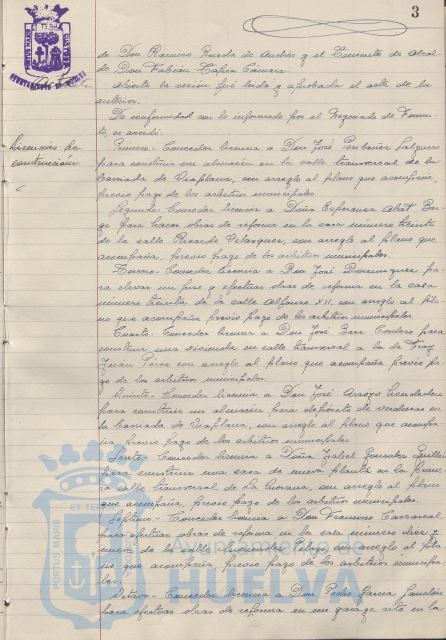 3
de Don Ramiro Rueda de Andrés y el Teniente de Alcal-
de Don Fabián Tapia Cámara.
Abierta la sesión fué leída y aprobada el acta de la
anterior.
De conformidad con lo informado por el Negociado de Fomen-
to, se acordó:
Licencias de
construcción.
Primero.- Conceder licencia a Don José Peñalver
para construir un almacén en la calle transversal de la
Barriada de Viaplana, con arreglo al plano que acompaña
previo pago de los arbitrios municipales.
Segundo.- Conceder licencia a Doña Esperanza Abat
para hacer obras de reforma en la casa número treinta
de la calle Ricardo Velázquez, con arreglo al plano que
acompaña, previo pago de los arbitrios municipales.
Tercero.- Conceder licencia a Don José Domínguez pa-
ra elevar un piso y efectuar obras de reforma en la casa
número treinta de la calle Alfonso XII, con arreglo al pla-
no que acompaña previo pago de los arbitrios municipales.
Cuarto.- Conceder licencia a Don José Barr Cordero para
construir una vivienda en calle transversal a la de Fray
Juan Pérez con arreglo al plano que acompaña previo pa-
go de los arbitrios municipales.
Quinto.- Conceder licencia a Don José Arroyo
para construir un almacén para depósito de maderas en
la Barriada de Viaplana, con arreglo al plano que acompa-
ña, previo pago de los arbitrios municipales.
Sexto.- Conceder licencia a Doña Isabel González
para construir una casa de nueva planta en la prime-
ra calle transversal de La Morana, con arreglo al plano
que acompaña, previo pago de los arbitrios municipales.
Séptimo.- Conceder licencia a Don Francisco Carrascal
para efectuar obras de reforma en la casa número diez y
nueve de la calle Pelayo, con arreglo al pla-
no que acompaña, previo pago de los arbitrios municipa-
les.
Octavo.- Conceder licencia a Don Pedro García
para efectuar obras de reforma en un garage sito en la
PORTUS MARIS ET TERRAE
Ayuntamiento de
HUELVA